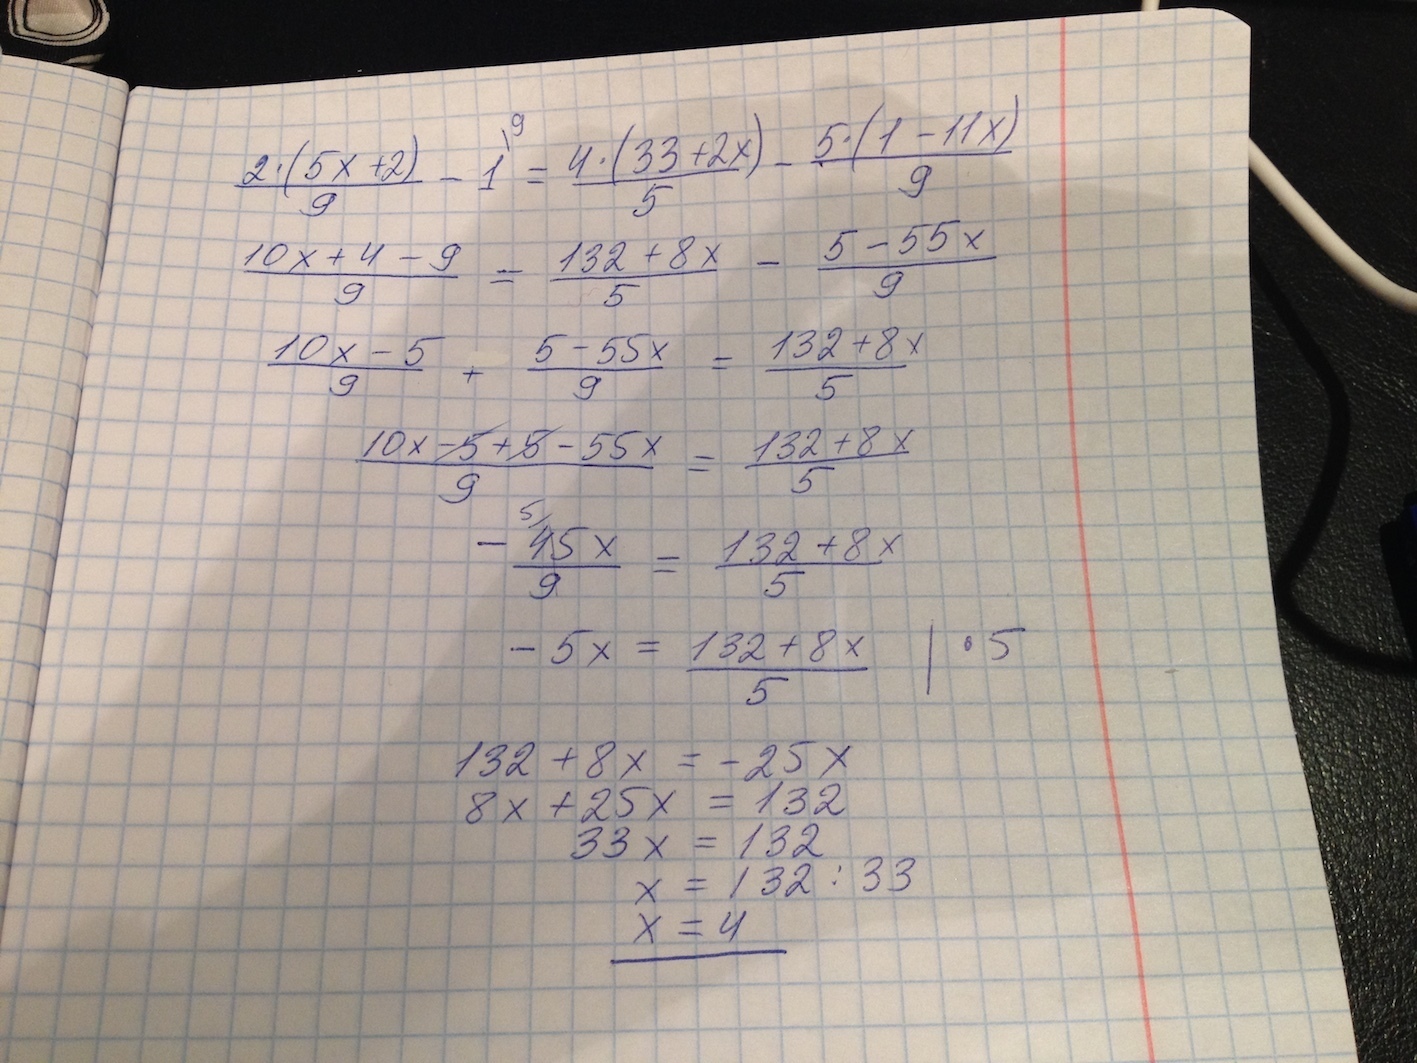 2·(5x+2)/9 - 1\9 = 4·(33+2x)/5 - 5·(1-11x)/9
10x+4-9/9 = 132+8x/5 - 5-55x/9
10x-5/9 + 5-55x/9 = 132+8x/5
10x-5+5-55x/9 = 132+8x/5
- 5/45x/9 = 132+8x/5
-5x = 132+8x/5 | ·5
132+8x = -25x
8x+25x = 132
33x = 132
x = 132:33
x = 4